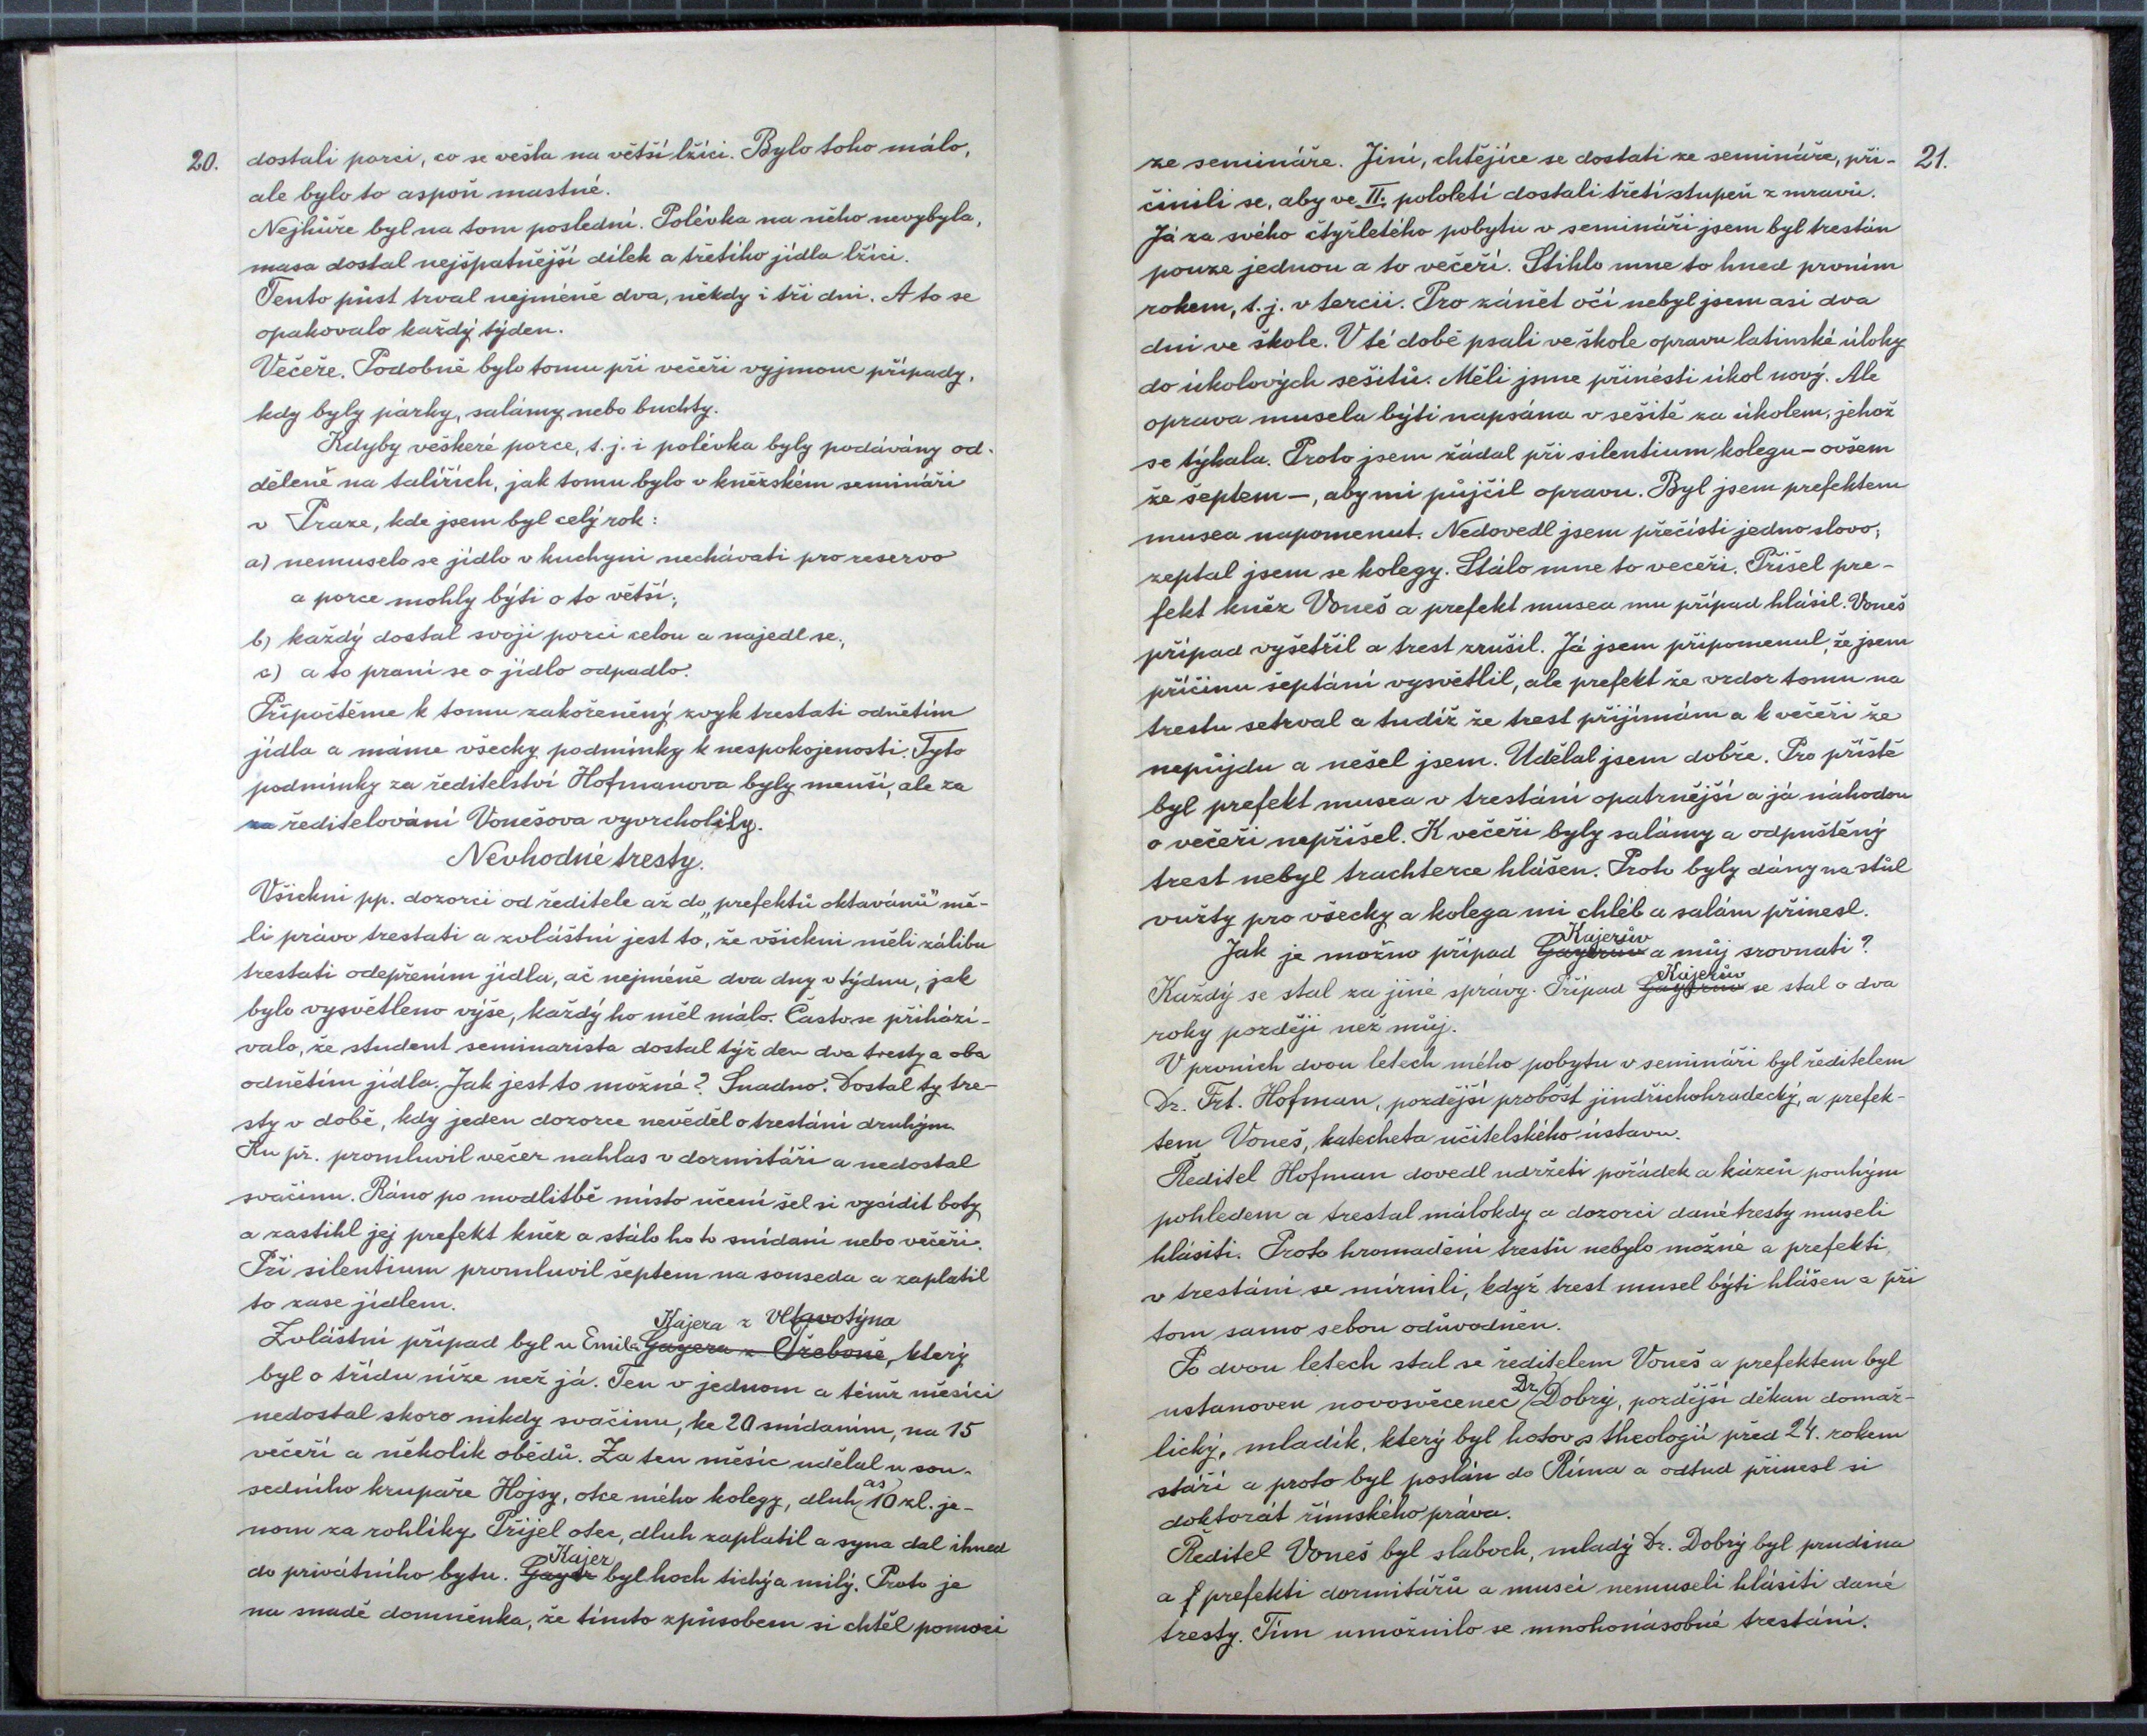 20.
dostali porci, co se vešla na větší lžíci. Bylo toho málo,
ale bylo to aspoň mastné.
Nejhůře byl na tom poslední. Polévka na něho nevybyla,
masa dostal nejšpatnější dílek a třetího jídla lžíci.
Tento půst trval nejméně dva, někdy i tři dni. A to se
opakovalo každý týden.
Večeře. Podobně bylo tomu při večeři vyjmouc případy,
kdy byly párky, salámy nebo buchty.
Kdyby veškeré porce, t. j. i polévka byly podávány od-
děleně na talířích, jak tomu bylo v kněžském semináři
v Praze, kde jsem byl celý rok:
a) nemuselo se jídlo v kuchyni nechávati pro reservo
a porce mohly býti o to větší;
b) každý dostal svoji porci celou a najedl se;
c) a to praní se o jídlo odpadlo.
Připočtěme k tomu zakořeněný zvyk trestati odnětím
jídla a máme všecky podmínky k nespokojenosti. Tyto
podmínky za ředitelství Hofmanova byly menší, ale za
za ředitelování Vonešova vyvrcholily.
Nevhodné tresty.
Všichni pp. dozorci od ředitele až do „prefektů oktavánů" mě-
li právo trestati a zvláštní jest to, že všichni měli zálibu
trestati odepřením jídla, ač nejméně dva dny v týdnu, jak
bylo vysvětleno výše, každý ho měl málo. Často se přihází-
valo, že student seminarista dostal týž den dva tresty a oba
odnětím jídla. Jak jest to možné? Snadno. Dostal ty tre-
sty v době, kdy jeden dozorce nevěděl o trestání druhým.
Ku př. promluvil večer nahlas v dormitáři a nedostal
svačinu. Ráno po modlitbě místo učení šel si vycídit boty
a zastihl jej prefekt kněz a stálo ho to snídaní nebo večeři.
Při silentium promluvil šeptem na souseda a zaplatil
to zase jídlem.
Kajera z Vltavotýna
Zvláštní případ byl u Emila Gayera z Třeboně, který
byl o třídu níže než já. Ten v jednom a témž měsíci
nedostal skoro nikdy svačinu, ke 20 snídaním, na 15
večeří a několik obědů. Za ten měsíc udělal u sou-
sedního krupaře Hojsy, otce mého kolegy, dluh as 10 zl. je-
nom za rohlíky. Přijel otec, dluh zaplatil a syna dal ihned
Kajer
do privátního bytu. Gayer byl hoch tichý a milý. Proto je
na snadě domněnka, že tímto způsobem si chtěl pomoci
21.
ze semináře. Jiní, chtějíce se dostati ze semináře, při-
činili se, aby ve II. pololetí dostali třetí stupeň z mravů.
Já za svého čtyřletého pobytu v semináři jsem byl trestán
pouze jednou a to večeří. Stihlo mne to hned prvním
rokem, t. j. v tercii. Pro zánět očí nebyl jsem asi dva
dni ve škole. V té době psali ve škole opravu latinské úlohy
do úkolových sešitů. Měli jsme přinésti úkol nový. Ale
oprava musela býti napsána v sešitě za úkolem, jehož
se týkala. Proto jsem žádal při silentium kolegu – ovšem
že šeptem –, aby mi půjčil opravu. Byl jsem prefektem
musea napomenut. Nedovedl jsem přečísti jedno slovo;
zeptal jsem se kolegy. Stálo mne to večeři. Přišel pre-
fekt kněz Voneš a prefekt musea mu případ hlásil. Voneš
případ vyšetřil a trest zrušil. Já jsem připomenul, že jsem
příčinu šeptání vysvětlil, ale prefekt že vzdor tomu na
trestu setrval a tudíž že trest přijímám a k večeři že
nepůjdu a nešel jsem. Udělal jsem dobře. Pro příště
byl prefekt musea v trestání opatrnější a já náhodou
o večeři nepřišel. K večeři byly salámy a odpuštěný
trest nebyl trachterce hlášen. Proto byly dány na stůl
vuřty pro všecky a kolega mi chléb a salám přinesl.
Kajerův
Jak je možno případ Gayerův a můj srovnati?
Kajerův
Každý se stal za jiné správy. Případ Gayerův se stal o dva
roky později než můj.
V prvních dvou letech mého pobytu v semináři byl ředitelem
Dr. Frt. Hofman, pozdější probošt jindřichohradecký, a prefek-
tem Voneš, katecheta učitelského ústavu.
Ředitel Hofman dovedl udržeti pořádek a kázeň pouhým
pohledem a trestal málokdy a dozorci dané tresty museli
hlásiti. Proto hromadění trestů nebylo možné a prefekti
v trestání se mírnili, když trest musel býti hlášen a při
tom samo sebou odůvodněn.
Po dvou letech stal se ředitelem Voneš a prefektem byl
ustanoven novosvěcenec Dr. Dobrý, pozdější děkan domaž-
lický, mladík, který byl hotov s theologií před 24. rokem
stáří a proto byl poslán do Říma a odtud přinesl si
doktorát římského práva.
Ředitel Voneš byl slaboch, mladý Dr. Dobrý byl prudina
a prefekti dormitářů a museí nemuseli hlásiti dané
tresty. Tím umožnilo se mnohonásobné trestání.